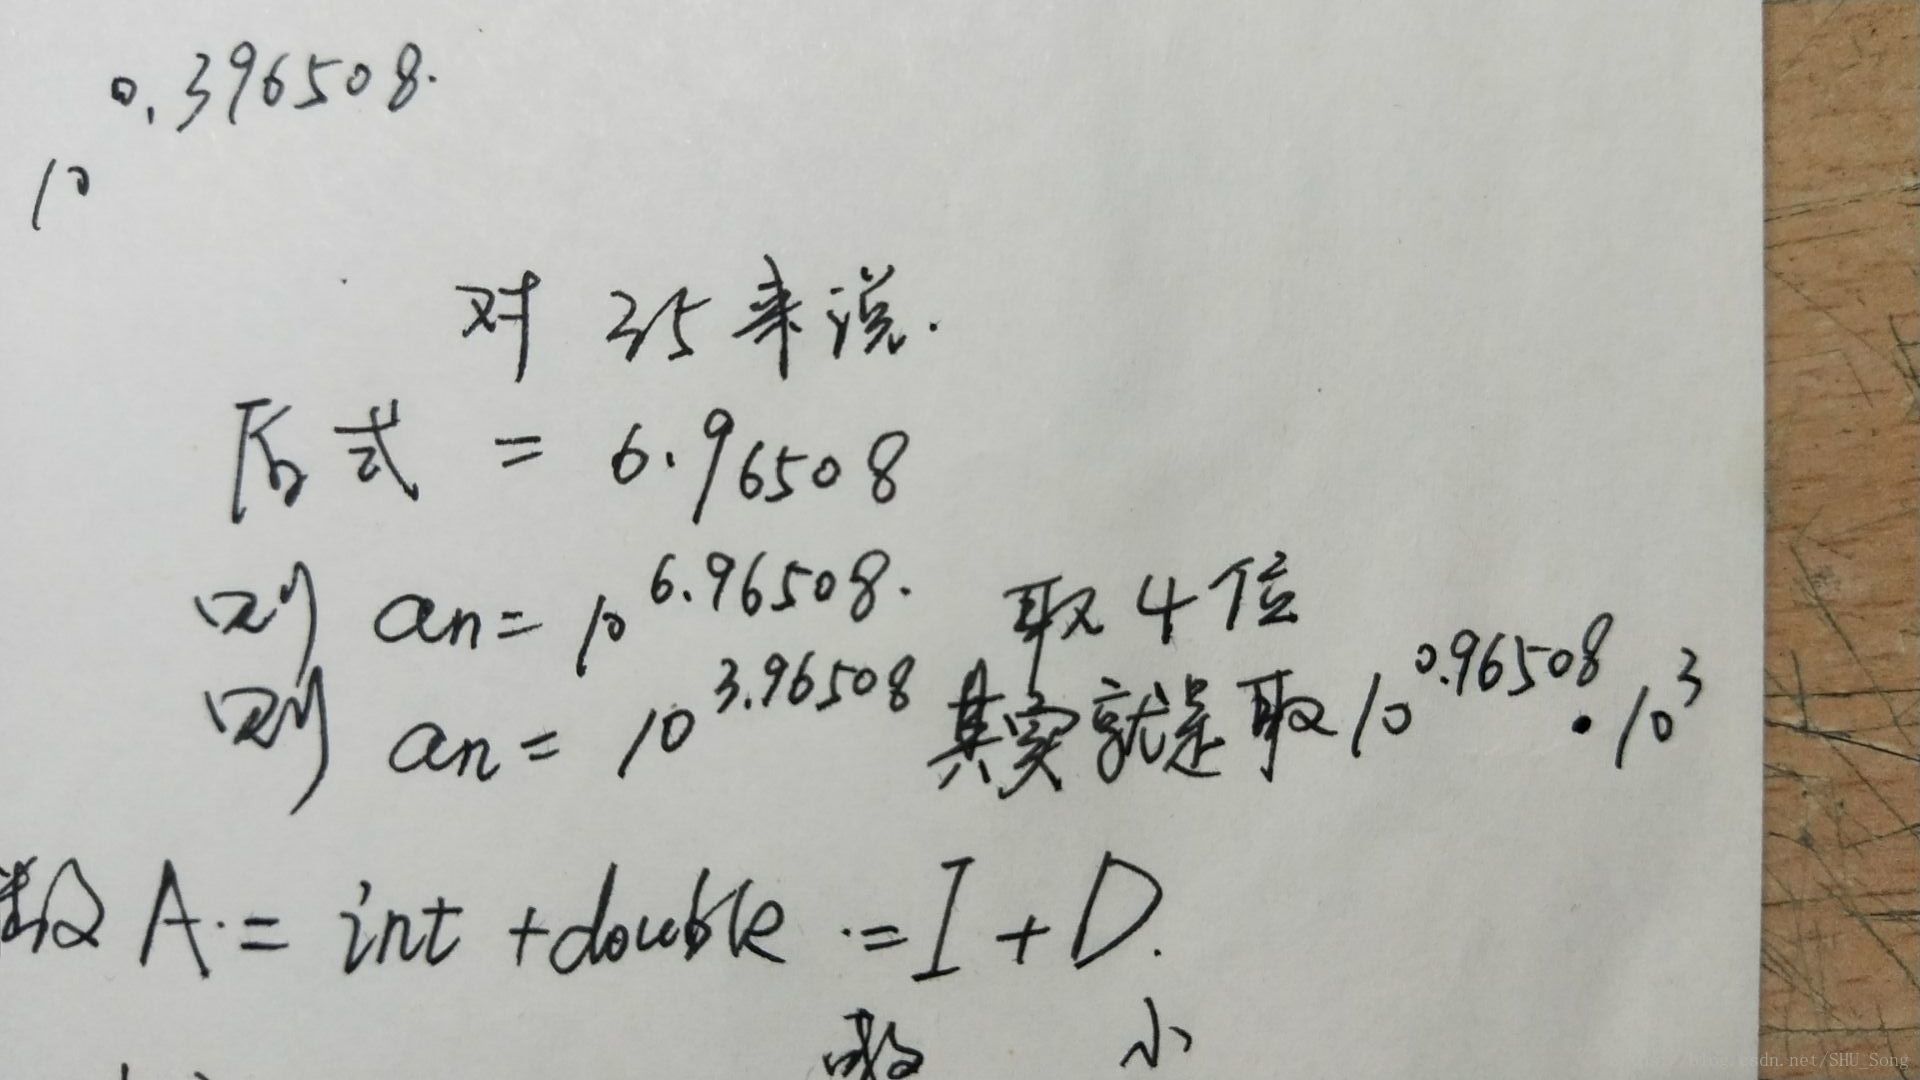 0.396508.
10
对 35 来说.
后式 = 6.96508
则 an = 10^6.96508. 取4位
则 an = 10^3.96508 其实就是取 10^0.96508 · 10^3
数 A. = int + double .= I + D.
小
blog.csdn.net/SHU_Song